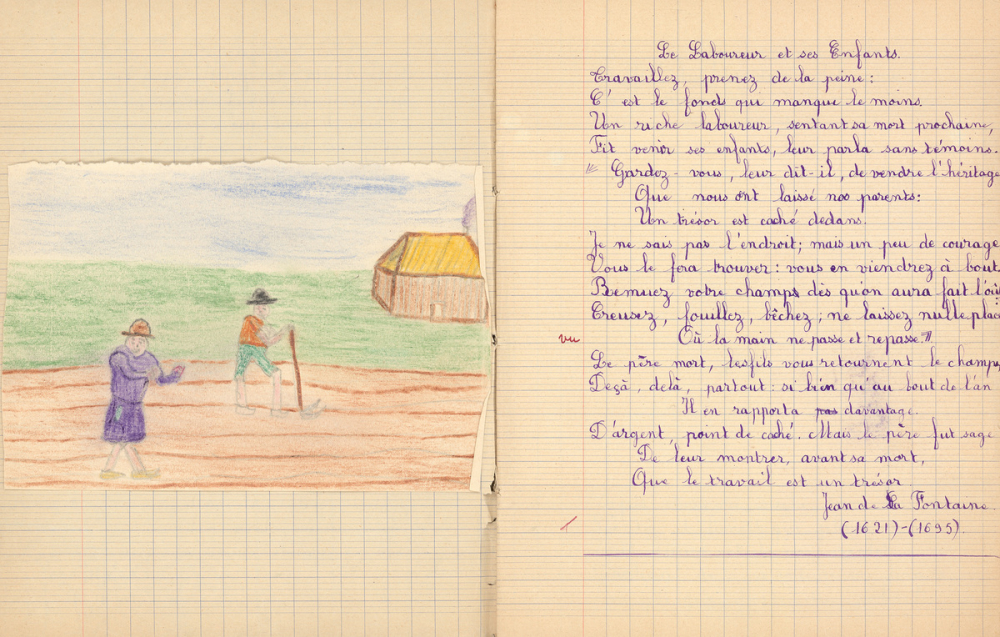 Le Laboureur et ses Enfants.
Travaillez, prenez de la peine :
C'est le fonds qui manque le moins.
Un riche laboureur, sentant sa mort prochaine,
Fit venir ses enfants, leur parla sans témoins.
" Gardez-vous, leur dit-il, de vendre l'héritage
Que nous ont laissé nos parents :
Un trésor est caché dedans.
Je ne sais pas l'endroit ; mais un peu de courage
Vous le fera trouver : vous en viendrez à bout.
Remuez votre champs dès qu'on aura fait l'oût
Creusez, fouillez, bêchez ; ne laissez nulle place
vu
Où la main ne passe et repasse."
Le père mort, les fils vous retournent le champs,
Deçà, delà, partout : si bien qu'au bout de l'an
Il en rapporta davantage.
D'argent, point de caché. Mais le père fut sage
De leur montrer, avant sa mort,
Que le travail est un trésor
Jean de La Fontaine
(1621)-(1695).